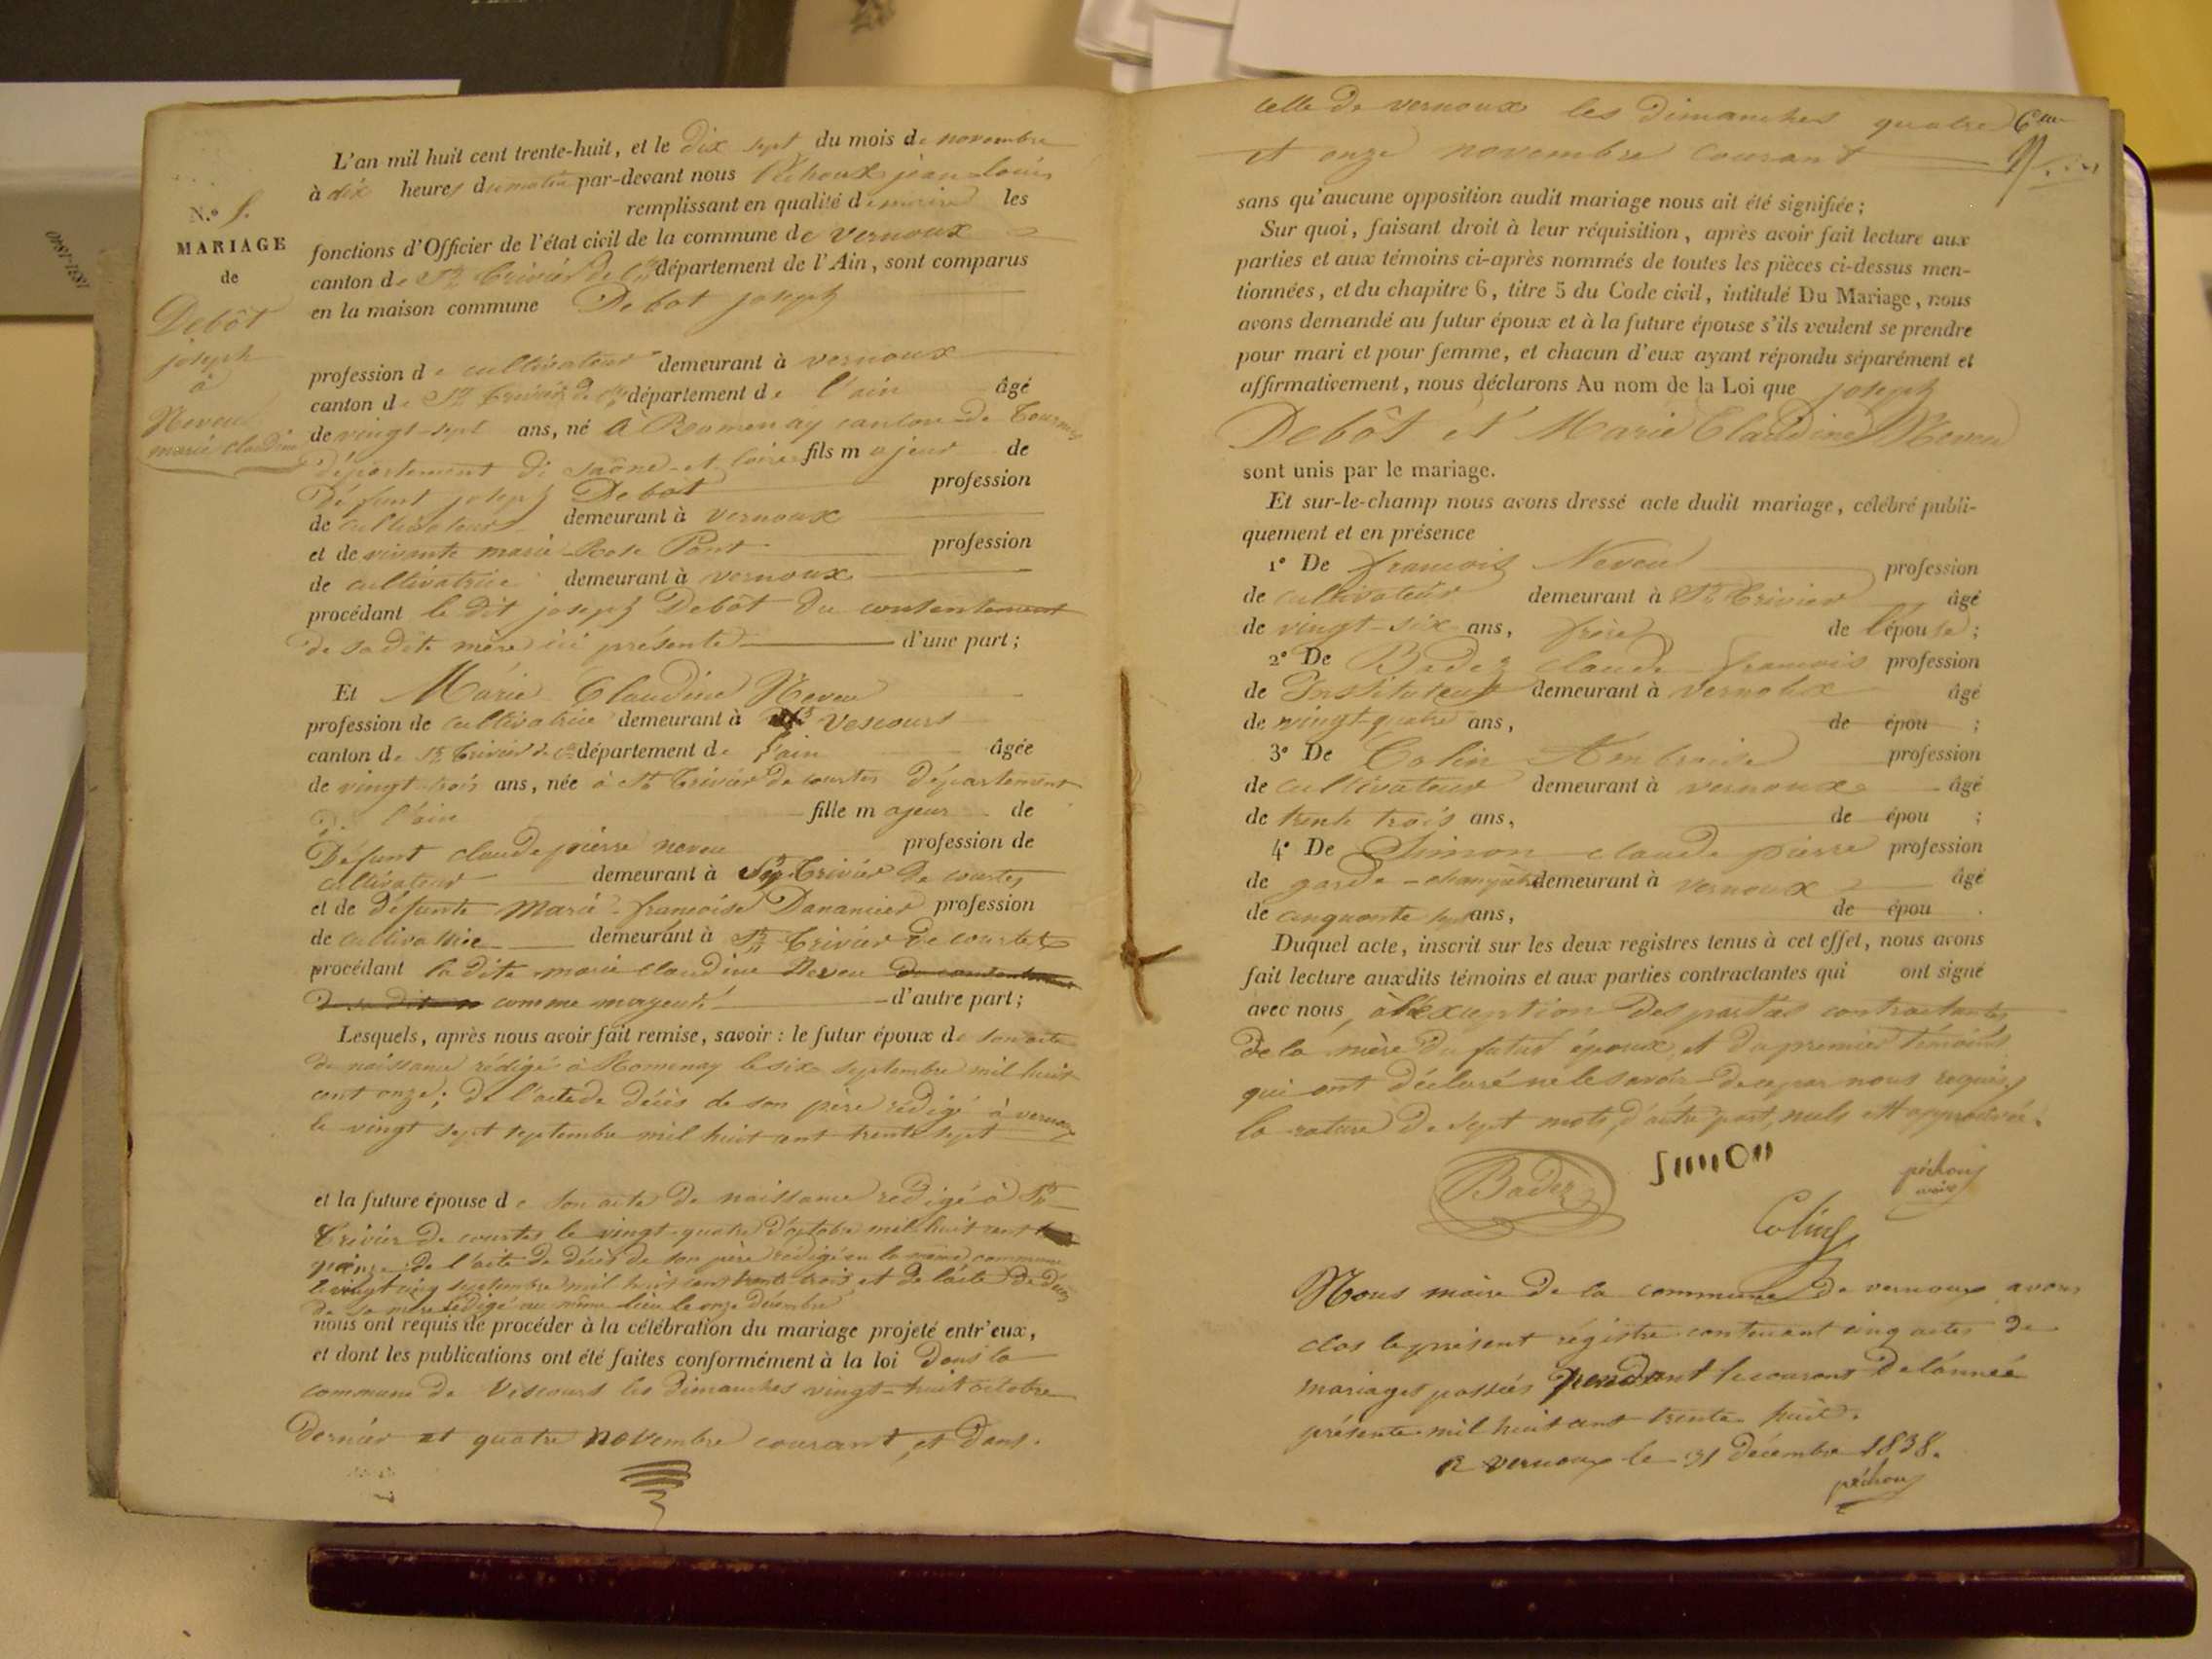 N.° 5.
MARIAGE
de
Debôt
joseph
à
Neveu
marie claudine
L'an mil huit cent trente-huit, et le dix sept du mois de novembre
à dix heures du matin par-devant nous Péchoux jean louis
remplissant en qualité de maire les
fonctions d'Officier de l'état civil de la commune de vernoux
canton de St Trivier de Ctes département de l'Ain, sont comparus
en la maison commune Debot joseph
profession de cultivateur demeurant à vernoux
canton de St Trivier de Ctes département de l'ain âgé
de vingt-sept ans, né à Romenay canton de Tournus
département de saône et loire fils majeur de
Défunt joseph Debot profession
de cultivateur demeurant à vernoux
et de vivante marie Rose Pont profession
de cultivatrice demeurant à vernoux
procédant le dit joseph Debôt du consentement
de sa dite mère ici présente d'une part;
Et Marie Claudine Neveu
profession de cultivatrice demeurant à vescours
canton de St Trivier de Ctes département de l'ain âgée
de vingt-trois ans, née à St Trivier de courtes département
de l'ain fille majeur de
Défunt claude pierre neveu profession de
cultivateur demeurant à St Trivier de courtes
et de défunte Marie françoise Danancier profession
de cultivatrice demeurant à St Trivier de courtes
procédant la dite marie claudine Neveu du consentement
de sa dite comme majeure d'autre part;
Lesquels, après nous avoir fait remise, savoir: le futur époux de son acte
de naissance rédigé à Romenay le six septembre mil huit
cent onze; de l'acte de décès de son père rédigé à vernoux
le vingt sept septembre mil huit cent trente sept
et la future épouse de son acte de naissance rédigé à St
Trivier de courtes le vingt-quatre d'octobre mil huit cent
quinze de l'acte de décès de son père rédigé en la même commune
le vingt cinq septembre mil huit cent trente trois et de l'acte de décès
de sa mère rédigé au même lieu le onze décembre
nous ont requis de procéder à la célébration du mariage projeté entr'eux,
et dont les publications ont été faites conformément à la loi Dans la
commune de Vescours les dimanches vingt-huit octobre
dernier et quatre novembre courant, et dans
celle de vernoux les dimanches quatre
et onze novembre courant
sans qu'aucune opposition audit mariage nous ait été signifiée;
Sur quoi, faisant droit à leur réquisition, après avoir fait lecture aux
parties et aux témoins ci-après nommés de toutes les pièces ci-dessus men-
tionnées, et du chapitre 6, titre 5 du Code civil, intitulé Du Mariage, nous
avons demandé au futur époux et à la future épouse s'ils veulent se prendre
pour mari et pour femme, et chacun d'eux ayant répondu séparément et
affirmativement, nous déclarons Au nom de la Loi que joseph
Debôt et Marie Claudine Neveu
sont unis par le mariage.
Et sur-le-champ nous avons dressé acte dudit mariage, célébré publi-
quement et en présence
1° De francois Neveu profession
de cultivateur demeurant à St Trivier âgé
de vingt-six ans, frère de l'épouse;
2° De Badez claude francois profession
de Instituteur demeurant à vernoux âgé
de vingt-quatre ans, de épou ;
3° De Colin Ambroise profession
de cultivateur demeurant à vernoux âgé
de trente trois ans, de épou ;
4° De Simon claude pierre profession
de garde-champêtre demeurant à vernoux âgé
de cinquante sept ans, de épou .
Duquel acte, inscrit sur les deux registres tenus à cet effet, nous avons
fait lecture auxdits témoins et aux parties contractantes qui ont signé
avec nous, à l'exception des parties contractantes
de la mère du futur époux, et du premier témoins
qui ont déclaré ne le savoir de ce par nous requis
la rature de sept mots, d'autre part, nuls et approuvés.
Badez
Simon
péchoux
maire
Colin
Nous maire de la commune de vernoux avons
clos le présent régistre contenant cinq actes de
mariages passés pendant le courant de l'année
présente mil huit cent trente huit.
a vernoux le 31 décembre 1838.
péchoux